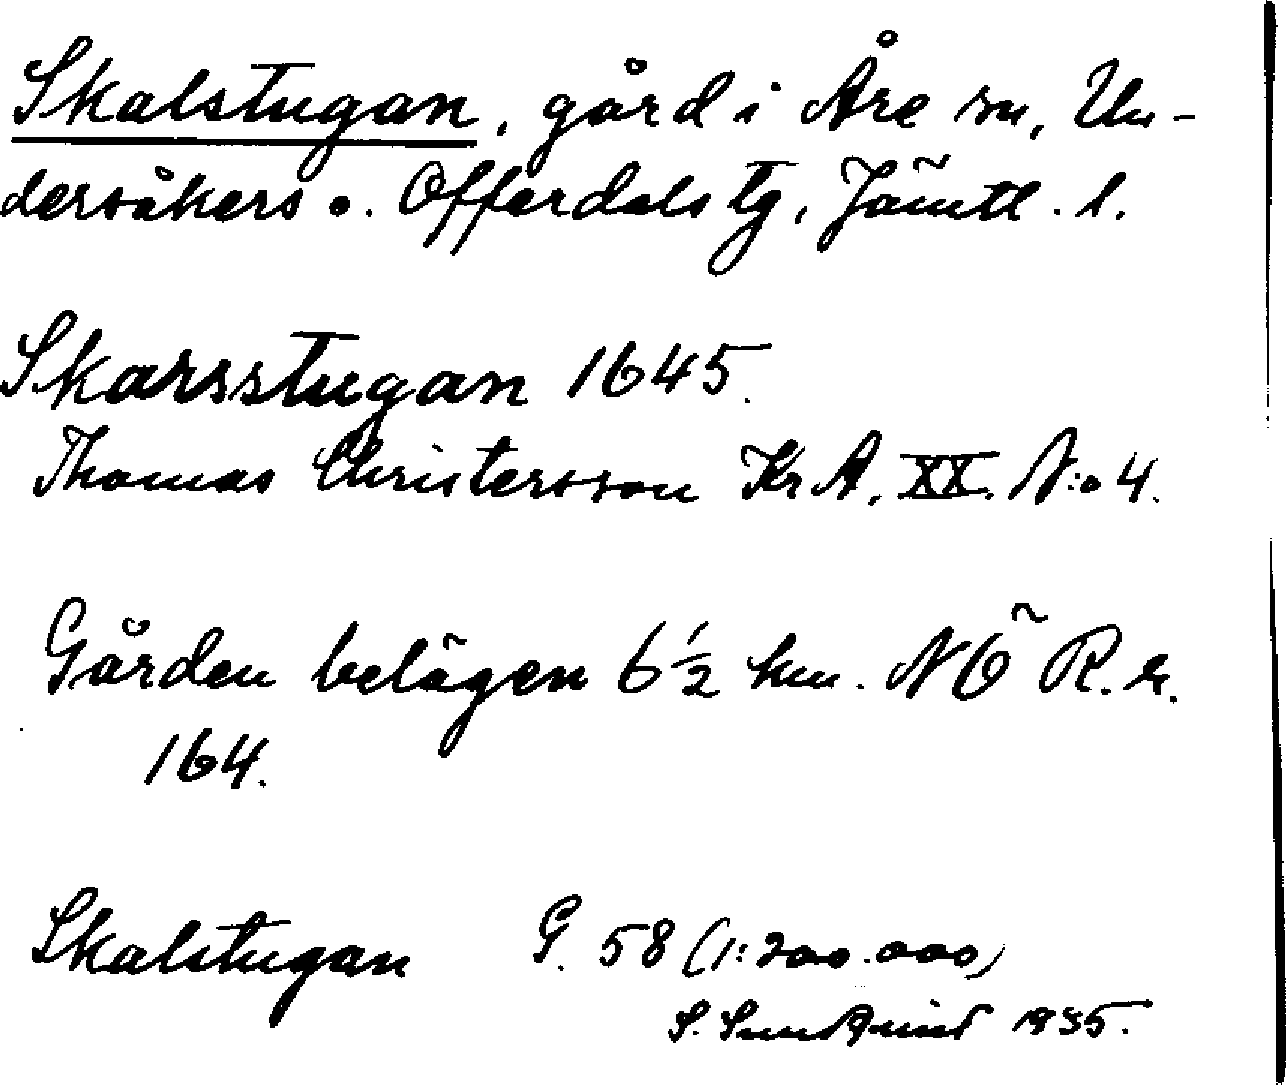 Skalstugan, gård i Åre sn, Un-
dersåkers o. Offerdals tg, Jämtl. l.
Skarsstugan 1645.
Thomas Christersson Kr A. XX. N:o 4.
Gården belägen 6 ½ km. NÖ R. r.
164.
Skalstugan G. 58 (1:200.000)
S. Sundqvist 1935.